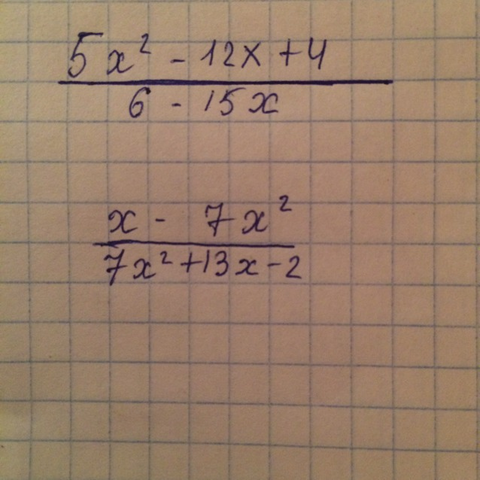 5x² - 12x + 4
6 - 15x
x - 7x²
7x² + 13x - 2